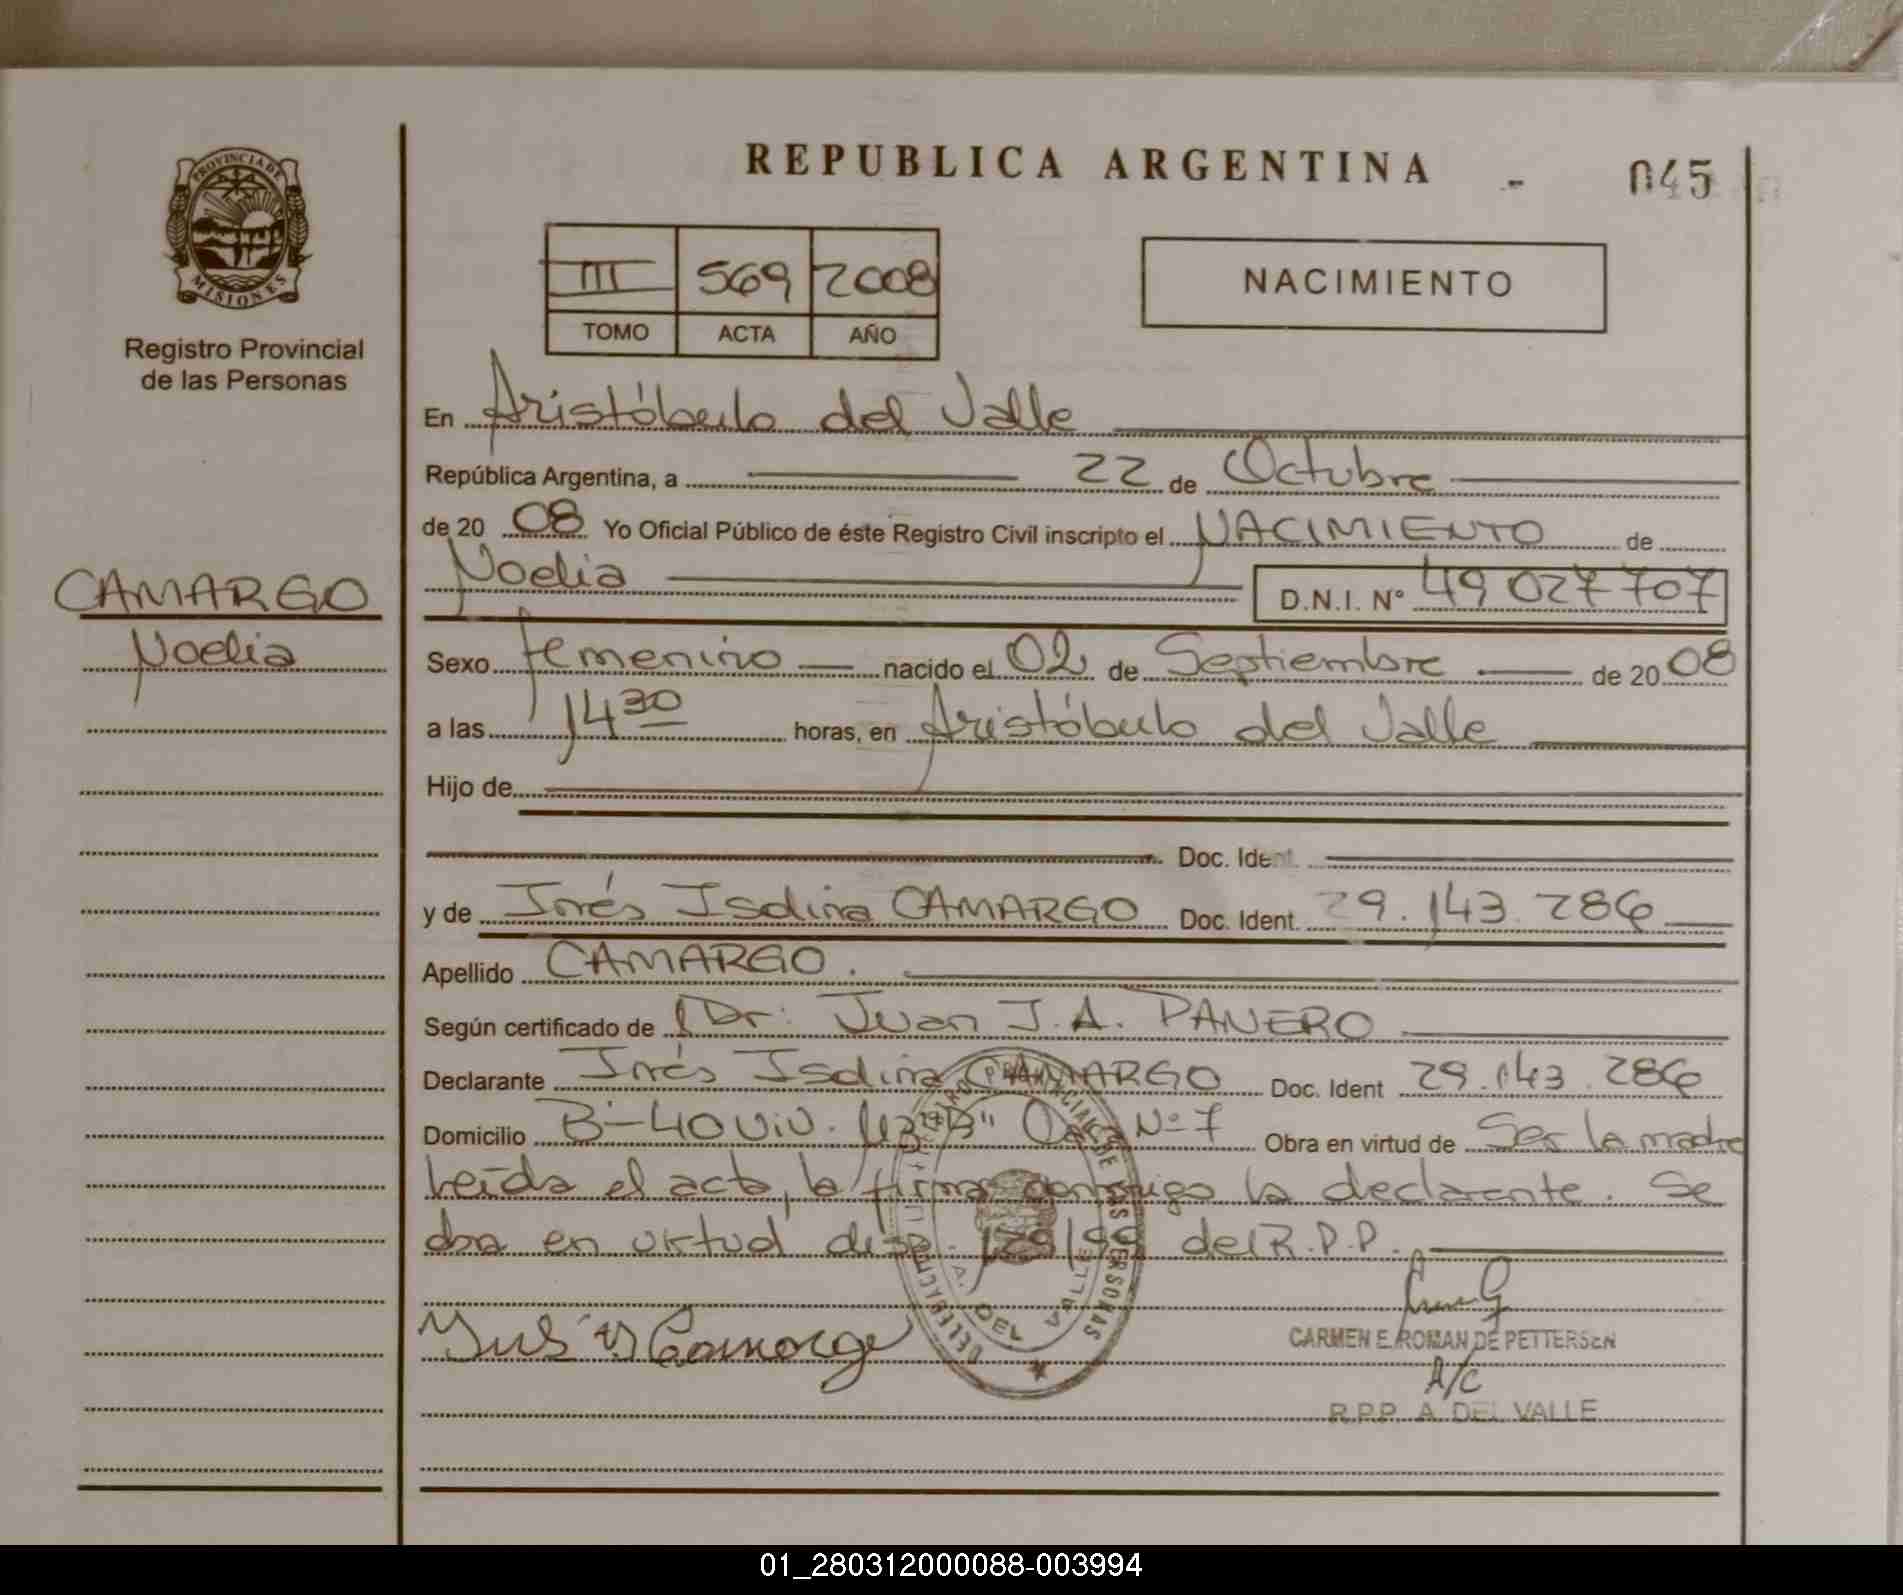 REPUBLICA ARGENTINA - 045
PROVINCIA DE MISIONES
Registro Provincial
de las Personas
III 569 2008
TOMO ACTA AÑO
NACIMIENTO
En Aristóbulo del Valle
República Argentina, a 22 de Octubre
de 20 08 Yo Oficial Público de éste Registro Civil inscripto el NACIMIENTO de
CAMARGO
Noelia
Noelia D.N.I. N° 49 027 707
Sexo femenino nacido el 02 de Septiembre de 20 08
a las 14 30 horas, en Aristóbulo del Valle
Hijo de
Doc. Ident.
y de Inés Isolina CAMARGO Doc. Ident. 29.143.286
Apellido CAMARGO.
Según certificado de Dr. Juan J.A. PANERO
Declarante Inés Isolina CAMARGO Doc. Ident 29.143.286
Domicilio B- 40 Viv. "B" Casa N° 7 Obra en virtud de Ser la madre
Leída el acta, la firma conmigo la declarante. Se
obra en virtud disp. 129/99 del R.P.P.
CARMEN E. ROMAN DE PETTERSEN
A/C
R.P.P. A. DEL VALLE
REGISTRO PROVINCIAL DE LAS PERSONAS
A. DEL VALLE
01_280312000088-003994